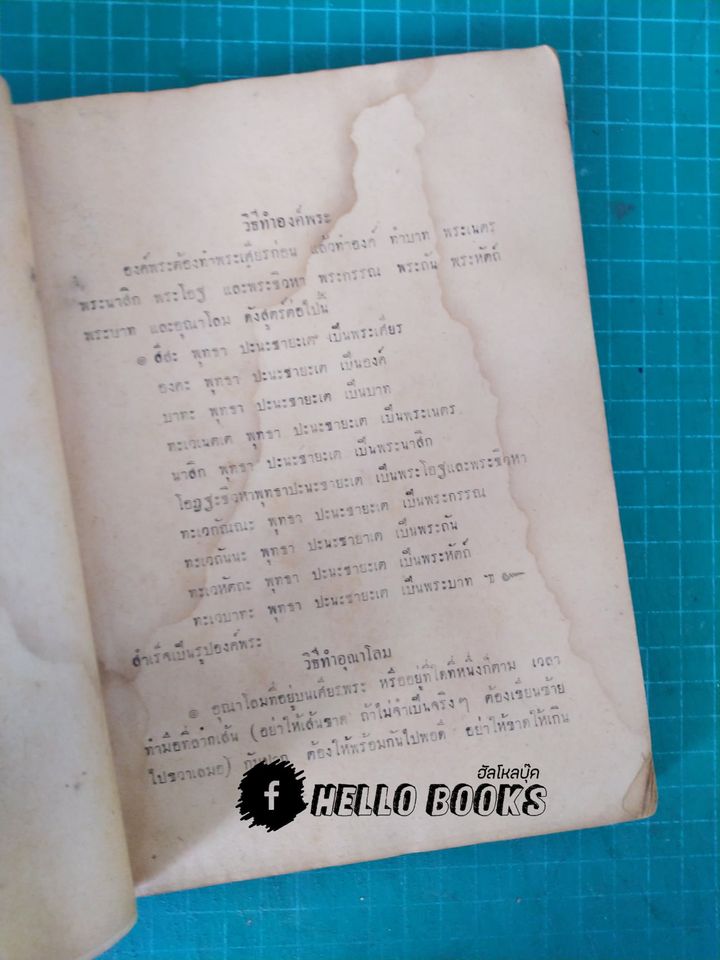 วิธีทำองค์พระ
องค์พระต้องทำพระเศียรก่อน แล้วทำองค์ ทำบาท พระเนตร
พระนาสิก พระโอฐ และพระชิวหา พระกรรณ พระถัน พระหัตถ์
พระบาท และอุณาโลม ดังสุตร์ต่อไปนี้
๑ สีสะ พุทธา ปะนะชายะเต เป็นพระเศียร
องคะ พุทธา ปะนะชายะเต เป็นองค์
บาทะ พุทธา ปะนะชายะเต เป็นบาท
ทะเวเนตเต พุทธา ปะนะชายะเต เป็นพระเนตร
นาสิก พุทธา ปะนะชายะเต เป็นพระนาสิก
โอฏฐะชิวหาพุทธาปะนะชายะเต เป็นพระโอฐและพระชิวหา
ทะเวกัณณะ พุทธา ปะนะชายะเต เป็นพระกรรณ
ทะเวถันนะ พุทธา ปะนะชายาเต เป็นพระถัน
ทะเวหัตถะ พุทธา ปะนะชายะเต เป็นพระหัตถ์
ทะเวบาทะ พุทธา ปะนะชายะเต เป็นพระบาท ฯ ๛
สำเร็จเป็นรูปองค์พระ
วิธีทำอุณาโลม
๑ อุณาโลมที่อยู่บนเศียรพระ หรืออยู่ที่ใดที่หนึ่งก็ตาม เวลา
ทำมือที่ลากเส้น (อย่าให้เส้นขาด ถ้าไม่จำเป็นจริงๆ ต้องเขียนซ้าย
ไปขวาเสมอ) ต้องให้พร้อมกันไปพอดี อย่าให้ขาดให้เกิน
ฮัลโหลบุ๊ค
f HELLO BOOKS